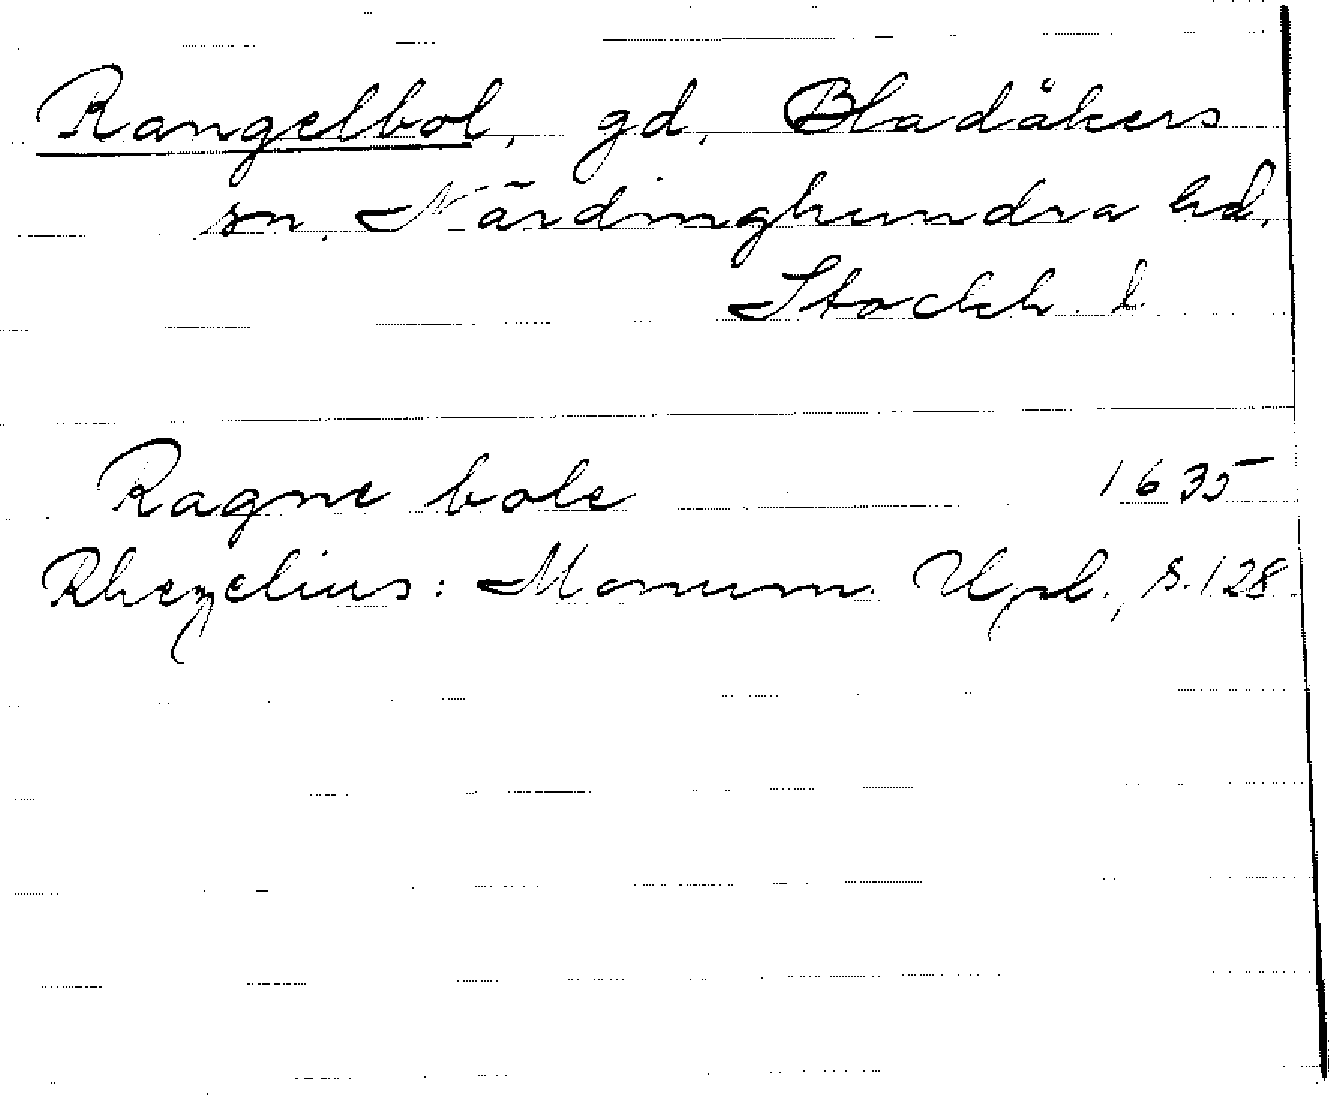 Rangelbol, gd, Bladåkers
sn, Närdinghundra hd.
Stockh. l.
Ragne bole 1635
Rhezelius: Monum. Upl., s. 128